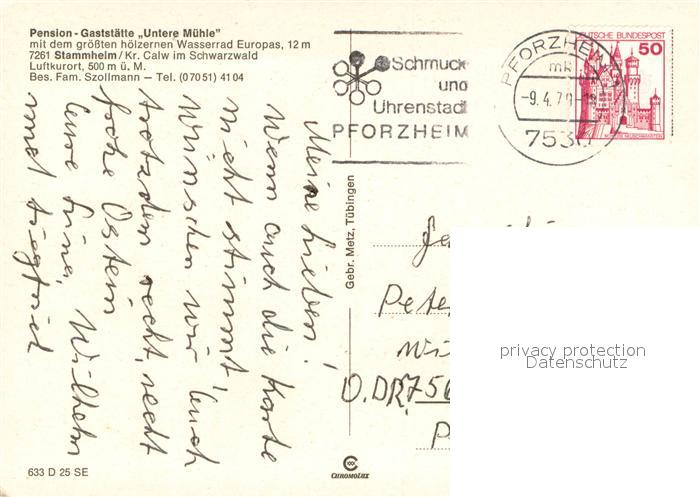 Pension - Gaststätte „Untere Mühle"
mit dem größten hölzernen Wasserrad Europas, 12 m
7261 Stammheim/Kr. Calw im Schwarzwald
Luftkurort, 500 m ü. M.
Bes. Fam. Szollmann — Tel. (07051) 4104
Schmuck
und
Uhrenstadt
PFORZHEIM
PFORZHEIM
mk
-9.4.79-18
7530
DEUTSCHE BUNDESPOST
50
Meine Lieben!
Wenn auch die Karte
nicht stimmt,
wünschen wir Euch
trotzdem recht, recht
frohe Ostern
Eure Luise, Wilhelm
und Siegfried
Gebr. Metz, Tübingen
Pete
O.DDR 756
P
privacy protection
Datenschutz
633 D 25 SE
CHROMOLUX